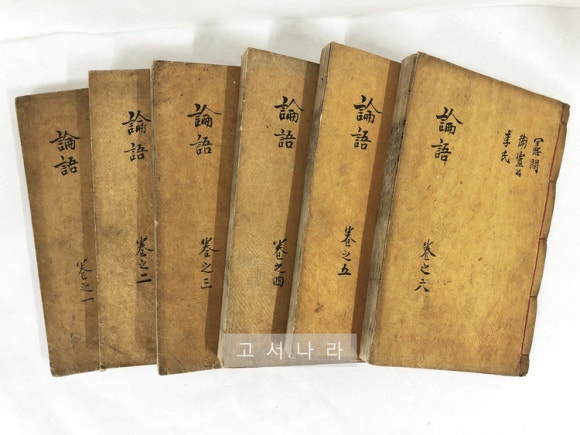 論語
卷之一
論語
卷之二
論語
卷之三
論語
卷之四
論語
卷之五
論語
卷之六
李氏
고서나라